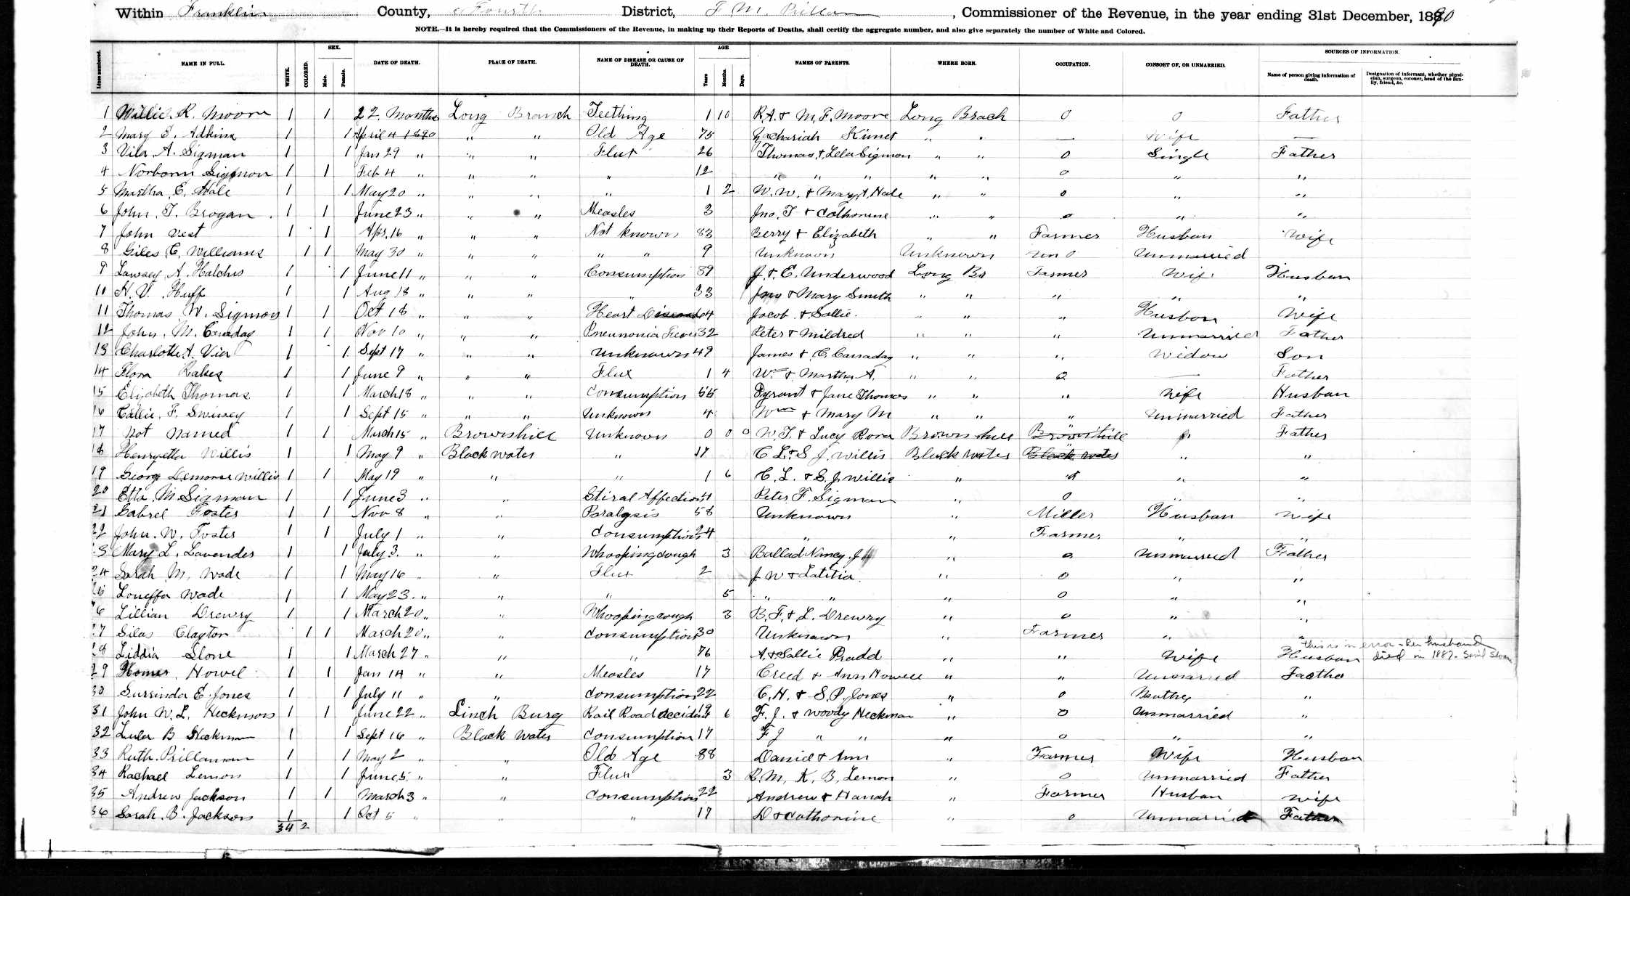 Within Franklin County, Fourth District, , Commissioner of the Revenue, in the year ending 31st December, 1890
NOTE.—It is hereby required that the Commissioners of the Revenue, in making up their Reports of Deaths, shall certify the aggregate number, and also give separately the number of White and Colored.
SEX. AGE SOURCES OF INFORMATION.
NAME IN FULL. WHITE. COLORED. Male. Female. DATE OF DEATH. PLACE OF DEATH. NAME OF DISEASE OR CAUSE OF DEATH. Years Months Days. NAMES OF PARENTS. WHERE BORN. OCCUPATION. CONSORT OF, OR UNMARRIED. Name of person giving information of death.
1 Willie. R. Moore 1 1 22 Months Long Branch Teething 1 10 R.A. & M. F. Moore Long Brach 0 0 Father
2 Mary E. Adkins 1 1 April 4 1890 " " Old Age 75 Zachariah " " — Wife —
3 Vila A. Sigmon 1 1 Jan 29 " " " Flux 26 Thomas & Lela Sigmon " " 0 Single Father
4 Norborn Sigmon 1 1 Feb 4 " " " " 12 " " " " " 0 " "
5 Martha E. Hale 1 1 May 20 " " " " 1 2 W. W. & Mary A Hale " " 0 " "
6 John. T. Brogan 1 1 June 23 " " " Measles 3 Jno. T & Catherine " " 0 " "
7 John Vest 1 1 Apr. 16 " " " Not known 83 Berry & Elizabeth " " Farmer Husban Wife
8 Giles C. Williams 1 1 May 30 " " " " " 9 Unknown Unknown Unmarried
9 A. Hatcher 1 1 June 11 " " " Consumption 39 J. & E. Underwood Long Br Farmer Wife Husban
10 H. V. Huff 1 1 Aug 18 " " " " 33 Jno & Mary Smith " " " " "
11 Thomas W. Sigmon 1 1 Oct 18 " " " Heart Disease 64 Jacob & Sallie " " " Husban Wife
12 John. M. Canaday 1 1 Nov 10 " " " Pneunonia Fever 32 Peter & Mildred " " " Unmarried Father
13 Charlotte A. Via 1 1 Sept 17 " " " Unknown 49 James & C. Cannaday " " " Widow Son
14 Flora Rakes 1 1 June 9 " " " Flux 1 4 Wm & Martha A. " " 0 — Father
15 Elizabeth Thomas 1 1 March 18 " " " Consumption 55 & Jane Thomas " " " Wife Husban
16 Callie. F. Swiney 1 1 Sept 15 " " " Unknown 4 Wm & Mary M " " " Unmarried Father
17 Not Named 1 1 March 15 " Brownshill Unknown 0 0 0 W. T. & Lucy Brownshill Brownshill Father
18 Henryetta Willis 1 1 May 9 " Blackwater " 17 C. L. & S. J. Willis Blackwater Blackwater " "
19 Georg Willis 1 1 May 19 " " " 1 6 C. L. & S. J. Willis " " " "
20 Etta M. Sigmon 1 1 June 3 " " Affection Peter F. Sigmon 0 " "
21 Gabrel Foster 1 1 Nov 8 " " Paralysis 58 Unknown " Miller Husban Wife
22 John. W. Foster 1 1 July 1 " " Consumption 24 " " Farmer " "
23 Mary L. Lavender 1 1 July 3. " " Whooping cough 3 Ballad Nancy J " 0 Unmarried Father
24 Sarah M. Wade 1 1 May 16 " " Flux 2 J W & Latitia " 0 " "
25 Wade 1 1 May 23 " " " 5 " " " 0 " "
26 Lillian Drewry 1 1 March 20 " " Whooping cough 3 B. F. & L. Drewry " 0 " "
27 Silas Clayton 1 1 March 20 " " Consumption 30 Unknown " Farmer " "
28 Liddia Slone 1 1 March 27 " " " 76 A & Sallie " " Wife Husban this is in error - her husband died in 1887.
29 Homer Howel 1 1 Jan 14 " " Measles 17 Creed & Ann Howell " " Unmarried Faatha
30 E. Jones 1 1 July 11 " " Consumption 22 C. H. & S. P. Jones " 0 "
31 John W. L. Heckman 1 1 June 22 " Linch Burg Rail Road accident 19 6 F. J. & Woody Heckman " 0 Unmarried "
32 Lula B Heckman 1 1 Sept 16 " Black Water Consumption 17 F J " " " 0 " "
33 Ruth Prillaman 1 1 May 2 " " Old Age 88 Daniel & Ann " Farmer Wife Husban
34 Rachael Lemon 1 1 June 5 " " Flux 3 M. K. B. Lemon " 0 Unmarried Father
35 Andrew Jackson 1 1 March 3 " " Consumption 22 Andrew & Hanah " Farmer Husban Wife
36 Sarah. B. Jackson 1 1 Oct 5 " " " 17 D & Catherine " 0 Unmarried Father
34 2